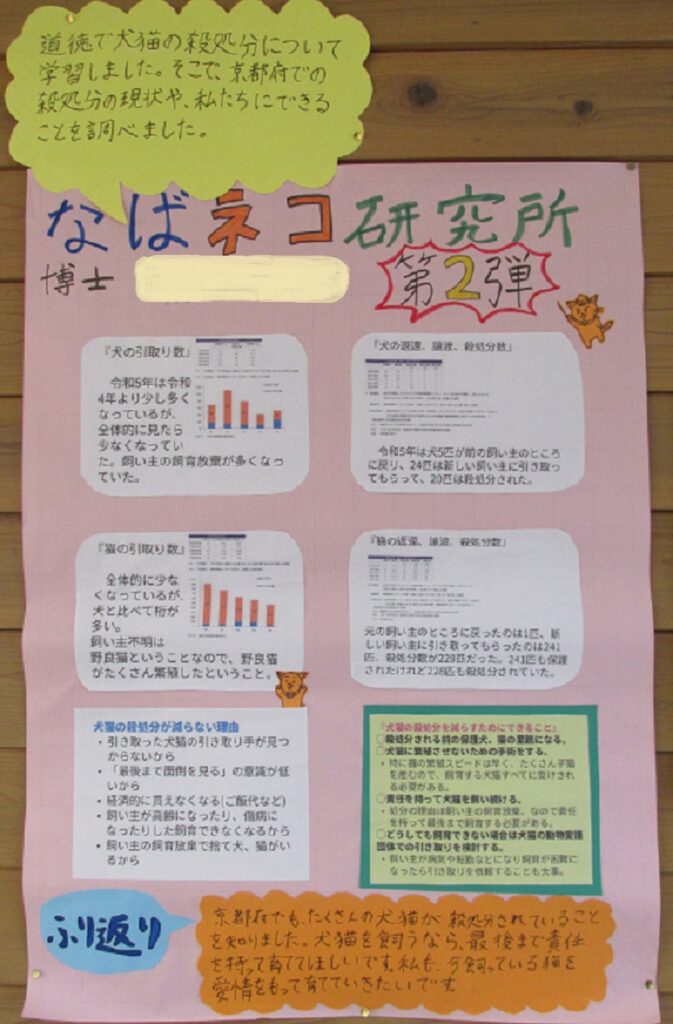 道徳で犬猫の殺処分について
学習しました。そこで、京都府での
殺処分の現状や、私たちにできる
ことを調べました。
なばネコ研究所
博士
第2弾
『犬の引取り数』
令和5年は令和
4年より少し多く
なっているが、
全体的に見たら
少なくなってい
た。飼い主の飼育放棄が多くなっ
ていた。
『犬の返還、譲渡、殺処分数』
令和5年は犬5匹が前の飼い主のところ
に戻り、24匹は新しい飼い主に引き取っ
てもらって、20匹は殺処分された。
『猫の引取り数』
全体的に少な
くなっているが、
犬と比べて桁が
多い。
飼い主不明は
野良猫ということなので、野良猫
がたくさん繁殖したということ。
『猫の返還、譲渡、殺処分数』
元の飼い主のところに戻ったのは1匹、新
しい飼い主に引き取ってもらったのは241
匹、殺処分数が228匹だった。241匹も保護
されたけれど228匹も殺処分されていた。
犬猫の殺処分が減らない理由
・引き取った犬猫の引き取り手が見つ
からないから
・「最後まで面倒を見る」の意識が低
いから
・経済的に買えなくなる(ご飯代など)
・飼い主が高齢になったり、傷病に
なったりした飼育できなくなるから
・飼い主の飼育放棄で捨て犬、猫がい
るから
『犬猫の殺処分を減らすためにできること』
○殺処分される前の保護犬、猫の里親になる。
○犬猫に繁殖させないための手術をする。
・特に猫の繁殖スピードは早く、たくさん子猫
を産むので、飼育する犬猫すべてに受けされ
る必要がある。
○責任を持って犬猫を飼い続ける。
・処分の理由は飼い主の飼育放棄、なので責任
を持って最後まで飼育する必要がある。
○どうしても飼育できない場合は犬猫の動物愛護
団体での引き取りを検討する。
・飼い主が病気や転勤などになり飼育が困難に
なったら引き取りを依頼することも大事。
ふり返り
京都府でも、たくさんの犬猫が殺処分されていること
を知りました。犬猫を飼うなら、最後まで責任
を持って育ててほしいです。私も、今飼っている猫を
愛情をもって育てていきたいです。